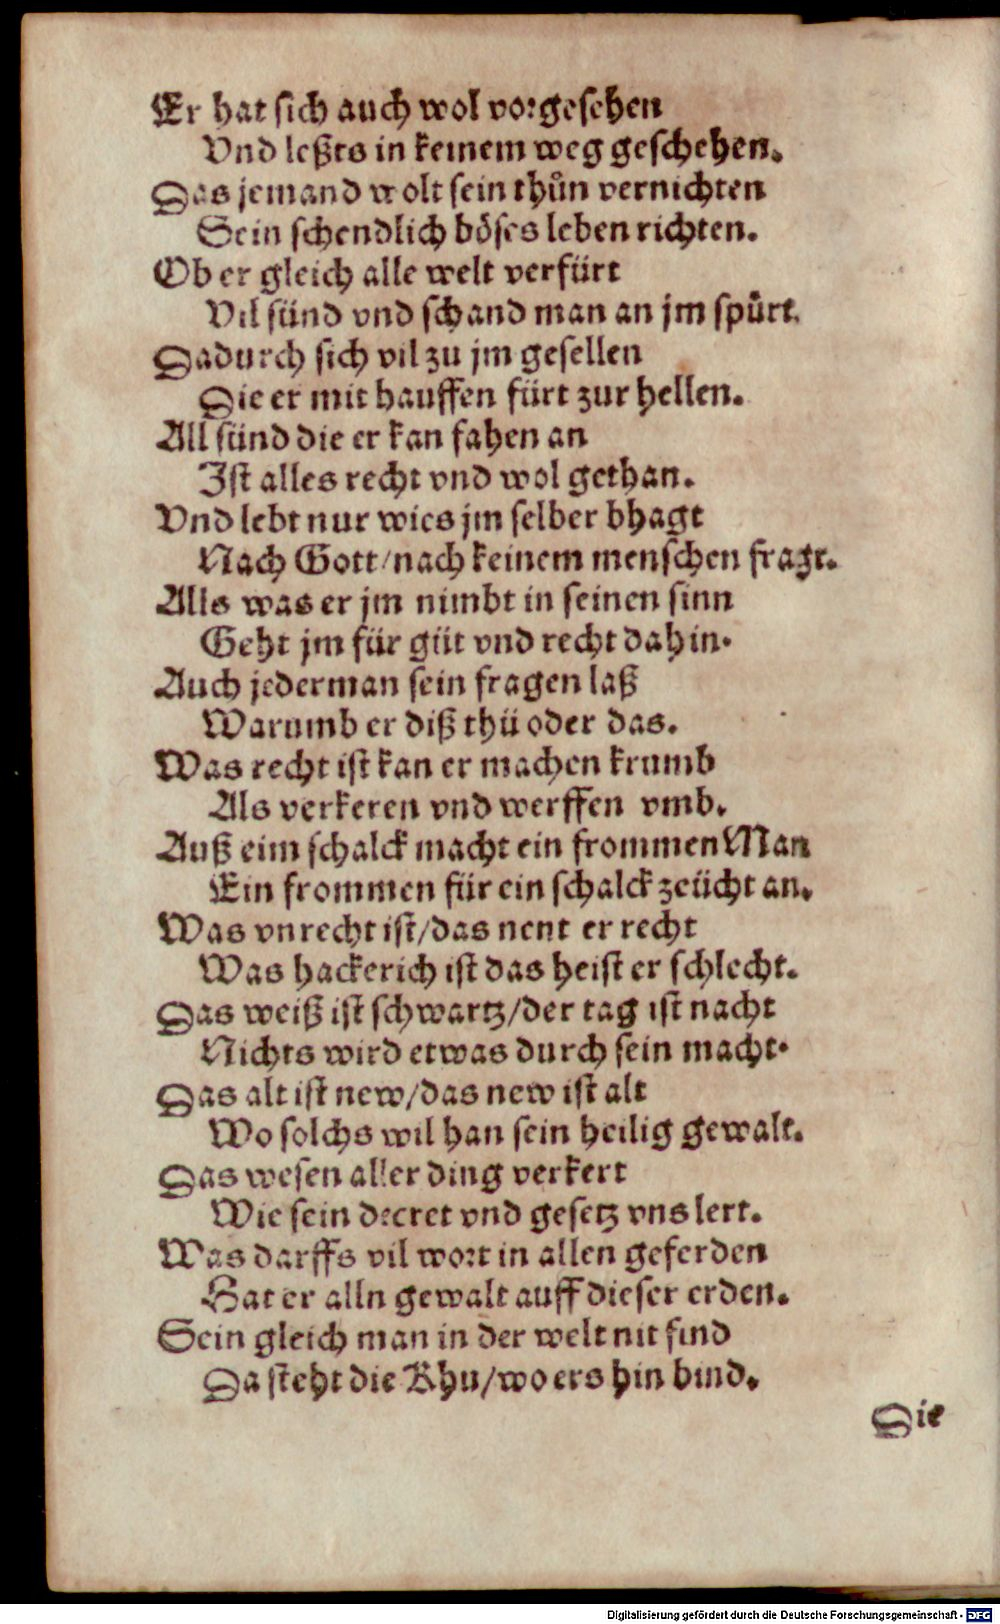 Er hat sich auch wol vorgesehen
Vnd leßts in keinem weg geschehen.
Das jemand wolt sein thůn vernichten
Sein schendlich böses leben richten.
Ob er gleich alle welt verfürt
Vil sünd vnd schand man an jm spůrt.
Dadurch sich vil zu jm gesellen
Die er mit hauffen fürt zur hellen.
All sünd die er kan fahen an
Ist alles recht vnd wol gethan.
Vnd lebt nur wies jm selber bhagt
Nach Gott/nach keinem menschen fragt.
Alls was er jm nimbt in seinen sinn
Geht jm für güt vnd recht dahin.
Auch jederman sein fragen laß
Warumb er diß thü oder das.
Was recht ist kan er machen krumb
Als verkeren vnd werffen vmb.
Auß eim schalck macht ein frommen Man
Ein frommen für ein schalck zeücht an.
Was vnrecht ist/das nent er recht
Was hackerich ist das heist er schlecht.
Das weiß ist schwartz/der tag ist nacht
Nichts wird etwas durch sein macht.
Das alt ist new/das new ist alt
Wo solchs wil han sein heilig gewalt.
Das wesen aller ding verkert
Wie sein decret vnd gesetz vns lert.
Was darffs vil wort in allen geferden
Hat er alln gewalt auff dieser erden.
Sein gleich man in der welt nit find
Da steht die Khu/wo ers hin bind.
Die
Digitalisierung gefördert durch die Deutsche Forschungsgemeinschaft - DFG